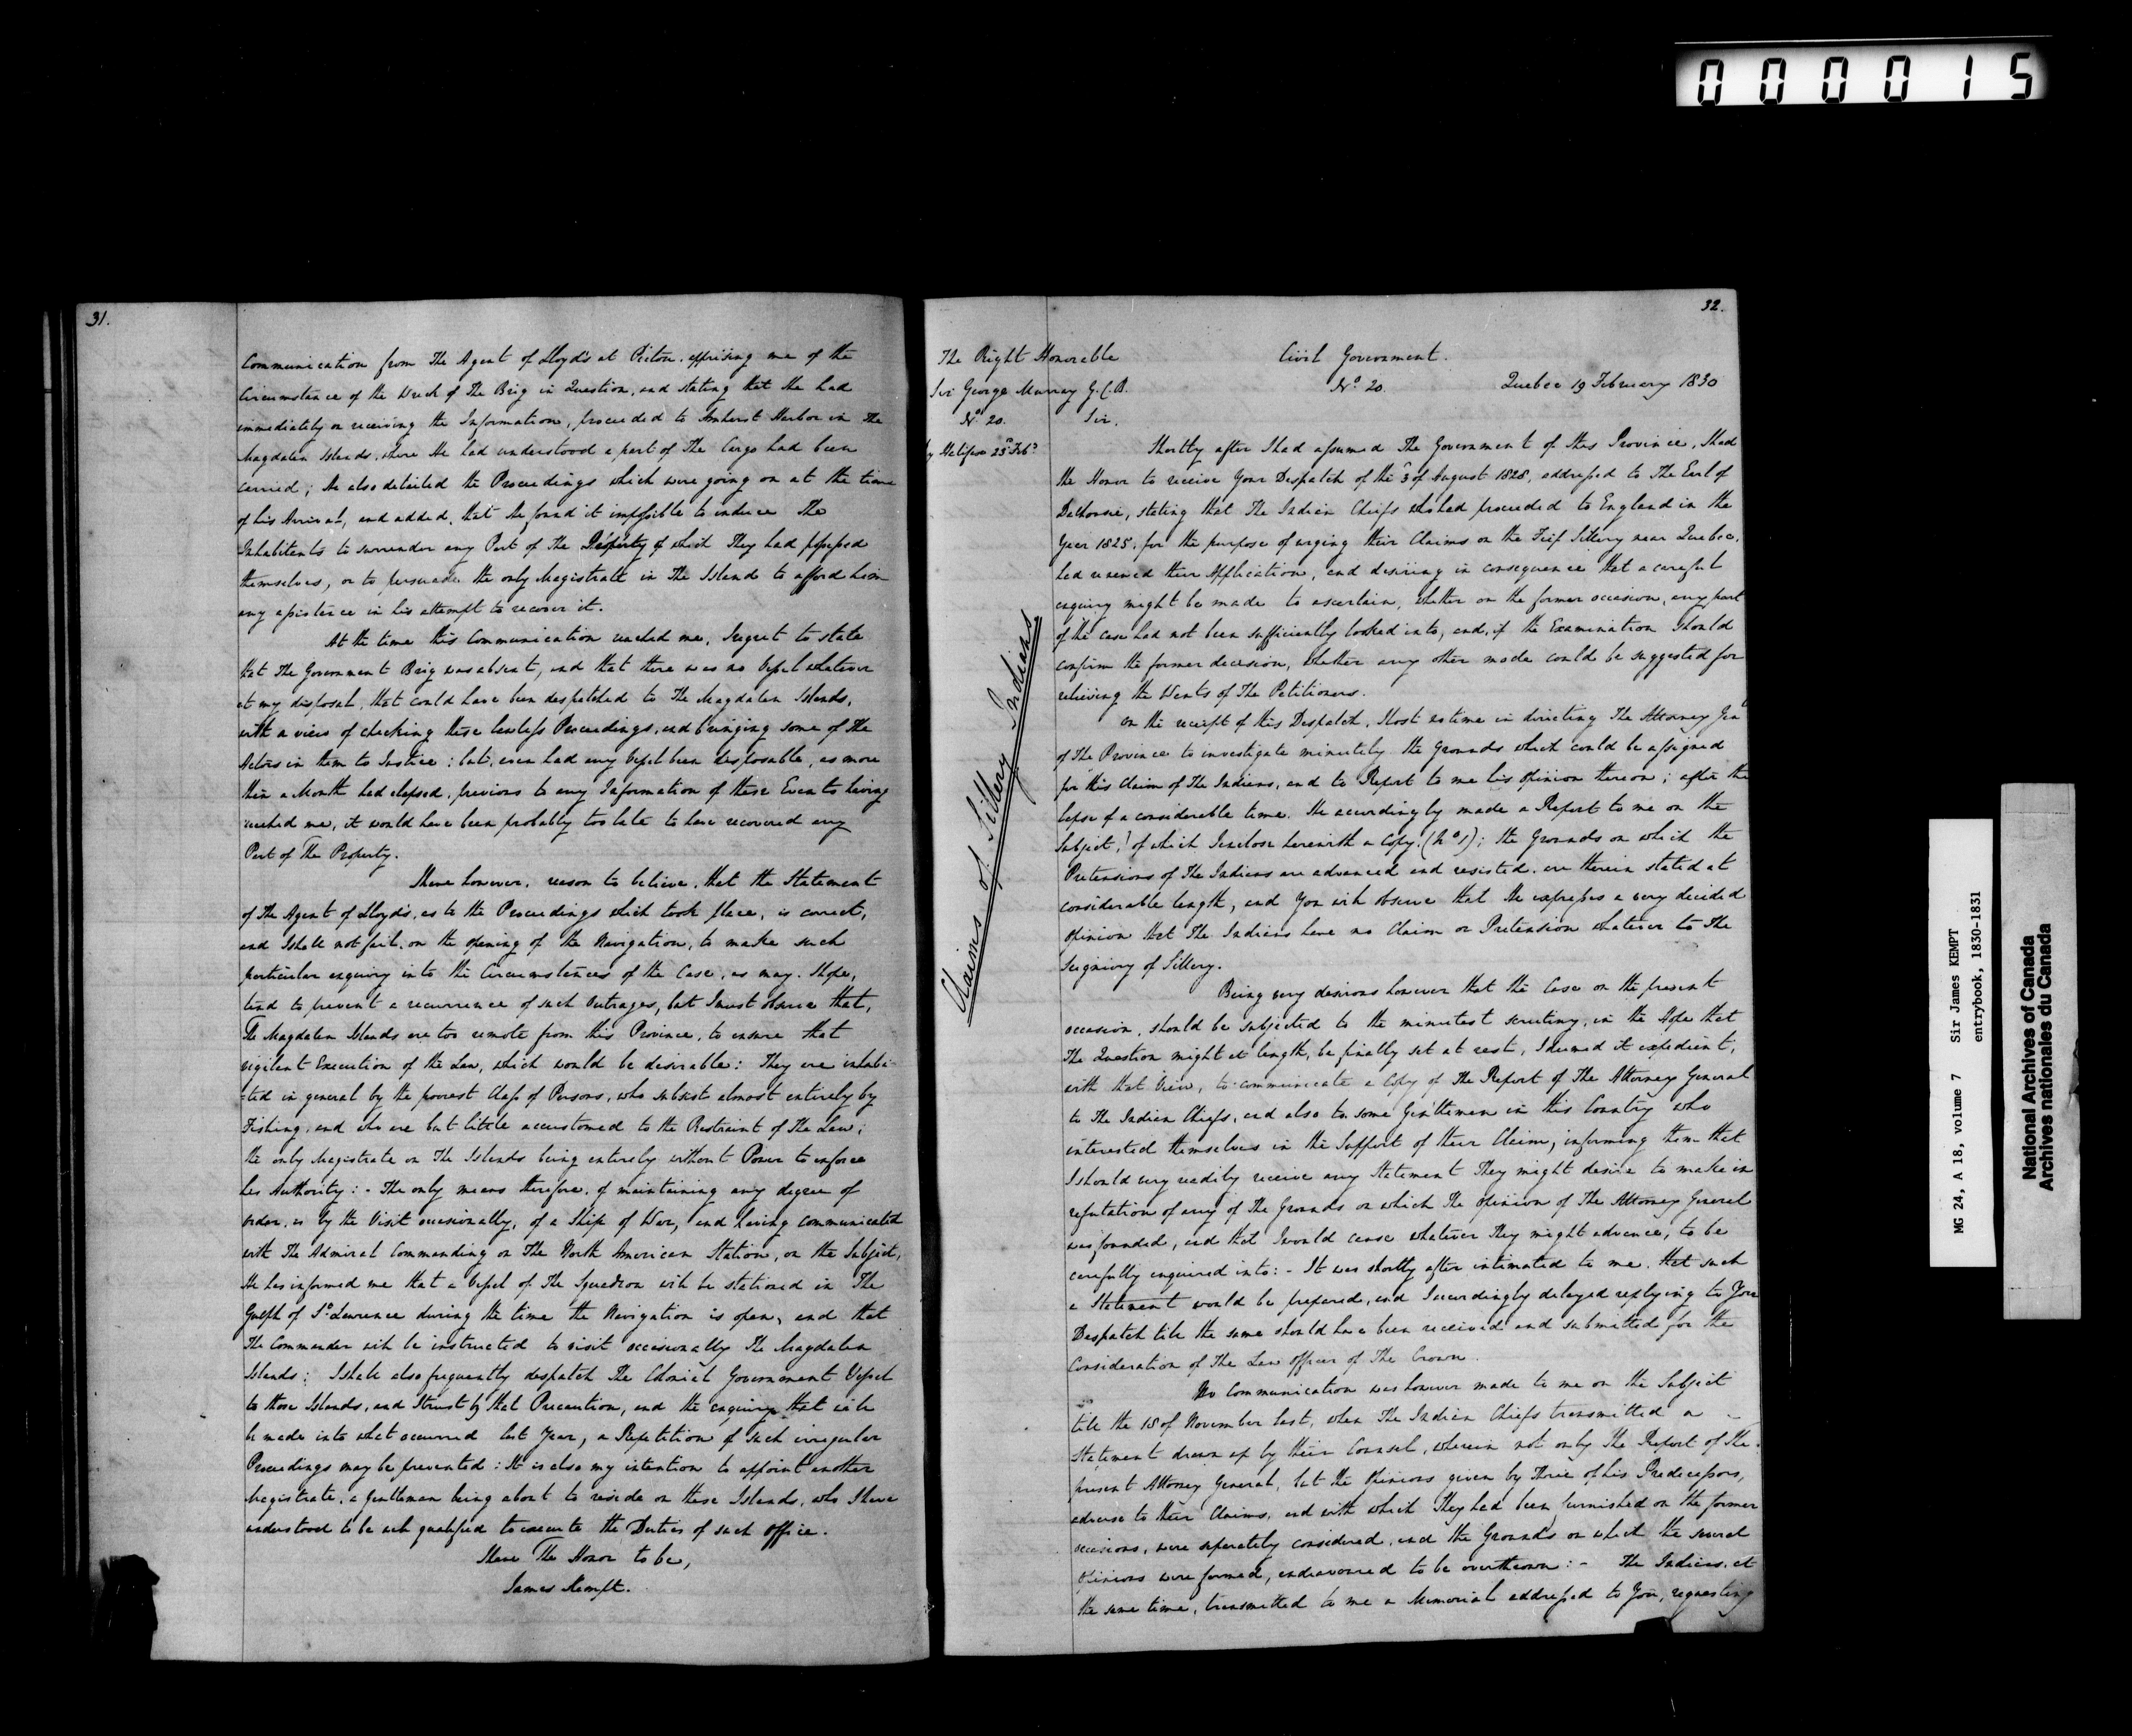 000015
31.
Communication from The Agent of Lloyd's at Pictou, apprising me of the
Circumstance of the Wreck of The Brig in Question, and stating that He had
immediately on receiving the Information, proceeded to Amherst Harbor in The
Magdalen Islands, where He had understood a part of The Cargo had been
Carried; He also detailed the Proceedings which were going on at the time
of his Arrival, and added, that He found it impossible to induce The
Inhabitants to surrender any Part of The Property of which They had possessed
themselves, or to persuade the only Magistrate in The Island to afford him
any assistance in his attempt to recover it.
At the time this Communication reached me, I regret to state
that The Government Brig was absent, and that there was no Vessel whatever
at my disposal, that could have been despatched to The Magdalen Islands,
with a view of checking these lawless Proceedings, and bringing some of The
Actors in them to Justice: but, even had any Vessel been disposable, as more
than a Month had elapsed, previous to any Information of these Events having
reached me, it would have been probably too late to have recovered any
Part of The Property.
I have however, reason to believe, that the Statement
of The Agent of Lloyd's, as to the Proceedings which took place, is correct,
and I shall not fail, on the opening of the Navigation, to make such
particular enquiry into the Circumstances of the Case, as may, I hope,
tend to prevent a recurrence of such Outrages, but I must observe that,
The Magdalen Islands are too remote from this Province, to ensure that
vigilant Execution of the Law, which would be desirable: They are inhabi-
-ted in general by the poorest Class of Persons, who subsist almost entirely by
Fishing, and who are but little accustomed to the Restraint of The Law;
the only Magistrate on The Islands being entirely without Power to enforce
his Authority: - The only means therefore, of maintaining any degree of
order, is by the Visit occasionally, of a Ship of War, and having communicated
with The Admiral Commanding on The North American Station, on the Subject,
He has informed me that a Vessel of The Squadron will be stationed in The
Gulph of St. Lawrence during the time the Navigation is open, and that
The Commander will be instructed to visit occasionally The Magdalen
Islands; I shall also frequently despatch The Colonial Government Vessel
to those Islands, and I trust by that Precaution, and the enquiry that will
be made into what occurred last Year, a Repetition of such irregular
Proceedings may be prevented: It is also my intention to appoint another
Magistrate, a Gentleman being about to reside on these Islands, who I have
understood to be well qualified to execute the Duties of such Office.
I have The Honor to be,
James Kempt.
32.
The Right Honorable
Sir George Murray G.C.B.
No. 20.
by Halifax 23rd Feby
Claims of Sillery Indians
Civil Government.
No. 20.
Quebec 19 February 1830
Sir,
Shortly after I had assumed The Government of this Province, I had
the Honor to receive Your Despatch of the 3 of August 1828, addressed to The Earl of
Dalhousie, stating that The Indian Chiefs who had proceeded to England in the
Year 1825, for the purpose of urging their Claims on the Fief Sillery near Quebec,
had renewed their Application, and desiring in consequence that a careful
enquiry might be made to ascertain, whether on the former occasion, any part
of the case had not been sufficiently looked into, and, if the Examination should
confirm the former decision, whether any other mode could be suggested for
relieving the Wants of The Petitioners.
On the receipt of this Despatch, I lost no time in directing The Attorney Genl
of The Province to investigate minutely the Grounds which could be assigned
for this Claim of The Indians, and to Report to me his opinion thereon; after the
lapse of a considerable time, He accordingly made a Report to me on the
Subject, of which I enclose herewith a Copy (No. 1); the Grounds on which the
Pretensions of The Indians are advanced and resisted, are therein stated at
considerable length, and You will observe that He expresses a very decided
opinion that The Indians have no Claim or Pretension whatever to The
Seigniory of Sillery.
Being very desirous however that the Case on the present
occasion, should be subjected to the minutest scrutiny, in the Hope that
The Question might at length, be finally set at rest, I deemed it expedient,
with that View, to communicate a Copy of The Report of The Attorney General
to The Indian Chiefs, and also to some Gentlemen in this Country who
interested themselves in the Support of their Claim, informing them that
I should very readily receive any Statement They might desire to make in
refutation of any of The Grounds on which The opinion of The Attorney General
was founded, and that I would cause whatever They might advance, to be
carefully enquired into: - It was shortly after intimated to me, that such
a Statement would be prepared, and I accordingly delayed replying to Your
Despatch till the same should have been received and submitted for the
Consideration of The Law Officer of The Crown.
No Communication was however made to me on the Subject
till the 18 of November last, when The Indian Chiefs transmitted a
Statement drawn up by their Counsel, wherein not only The Report of The
present Attorney General, but the Opinions given by Three of his Predecessors,
adverse to their Claims, and with which They had been furnished on the former
occasions, were separately considered, and the Grounds on which the several
Opinions were formed, endeavoured to be overthrown: - The Indians, at
the same time, transmitted to me a Memorial addressed to You, requesting
MG 24, A 18, volume 7 Sir James KEMPT
entrybook, 1830-1831
National Archives of Canada
Archives nationales du Canada